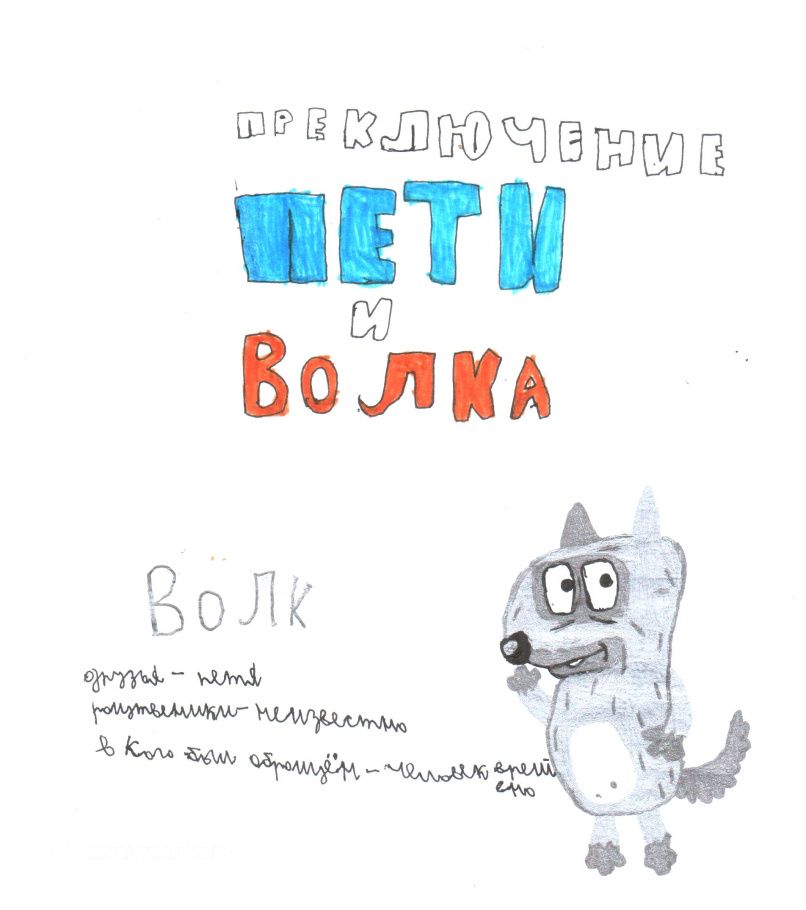 ПРЕКЛЮЧЕНИЕ
ПЕТИ
И
ВОЛКА
ВОЛК
друзья - петя
роитвеники - неизвестно
в кого был оброщён - человек врем
ено